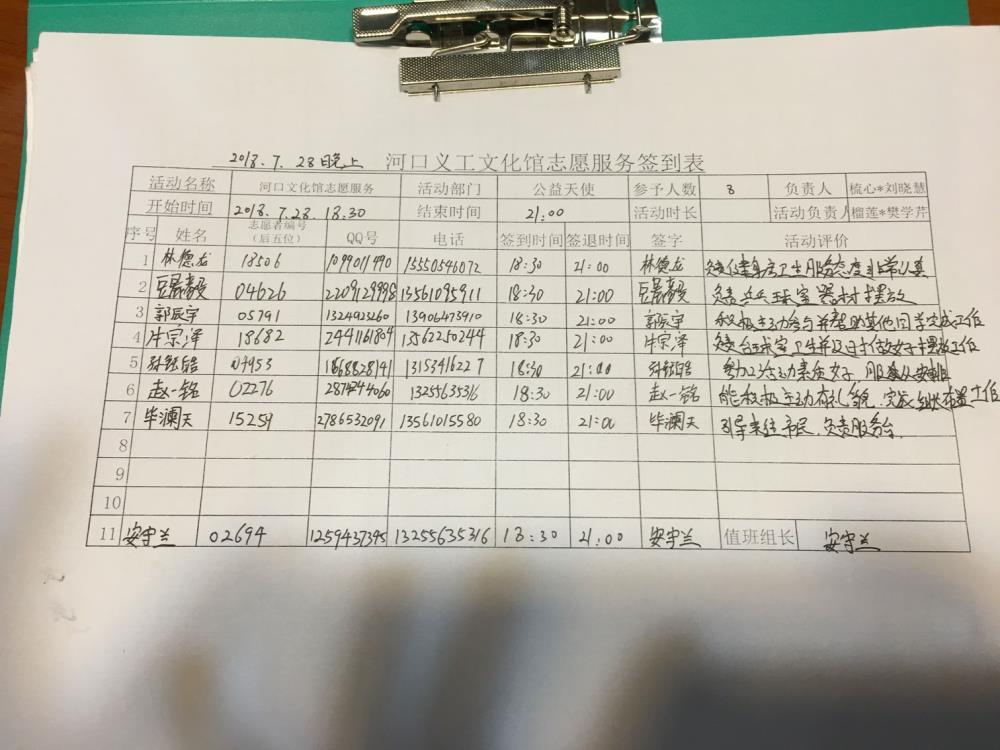 2018.7.28晚上 河口义工文化馆志愿服务签到表
活动名称 河口文化馆志愿服务 活动部门 公益天使 参予人数 8 负责人 梳心*刘晓慧
开始时间 2018.7.28.18:30 结束时间 21:00 活动时长 活动负责人 榴莲*樊学芹
序号 姓名 志愿者编号（后五位） QQ号 电话 签到时间 签退时间 签字 活动评价
1 林德龙 18506 1099011990 15550546072 18:30 21:00 林德龙 负责健身房卫生服务态度非常认真
2 04626 2209129998 13561095911 18:30 21:00 负责乒乓球室器材摆放
3 郭辰宇 05791 1324923260 13906473910 18:30 21:00 郭辰宇 积极主动参与并帮助其他同学完成工作
4 牛宗泽 18682 2441161809 13562250244 18:30 21:00 牛宗泽 负责台球室卫生并及时做好摆放工作
5 04953 1868828141 13153416227 18:30 21:00 服从安排
6 赵一铭 02276 13255635316 18:30 21:00 赵一铭 能积极主动有礼貌，完成组长布置工作
7 毕澜天 15259 2786532091 13561015580 18:30 21:00 毕澜天 引导来往市民，负责服务台
8
9
10
11 安守兰 02694 1259437395 13255635316 18:30 21:00 安守兰 值班组长 安守兰